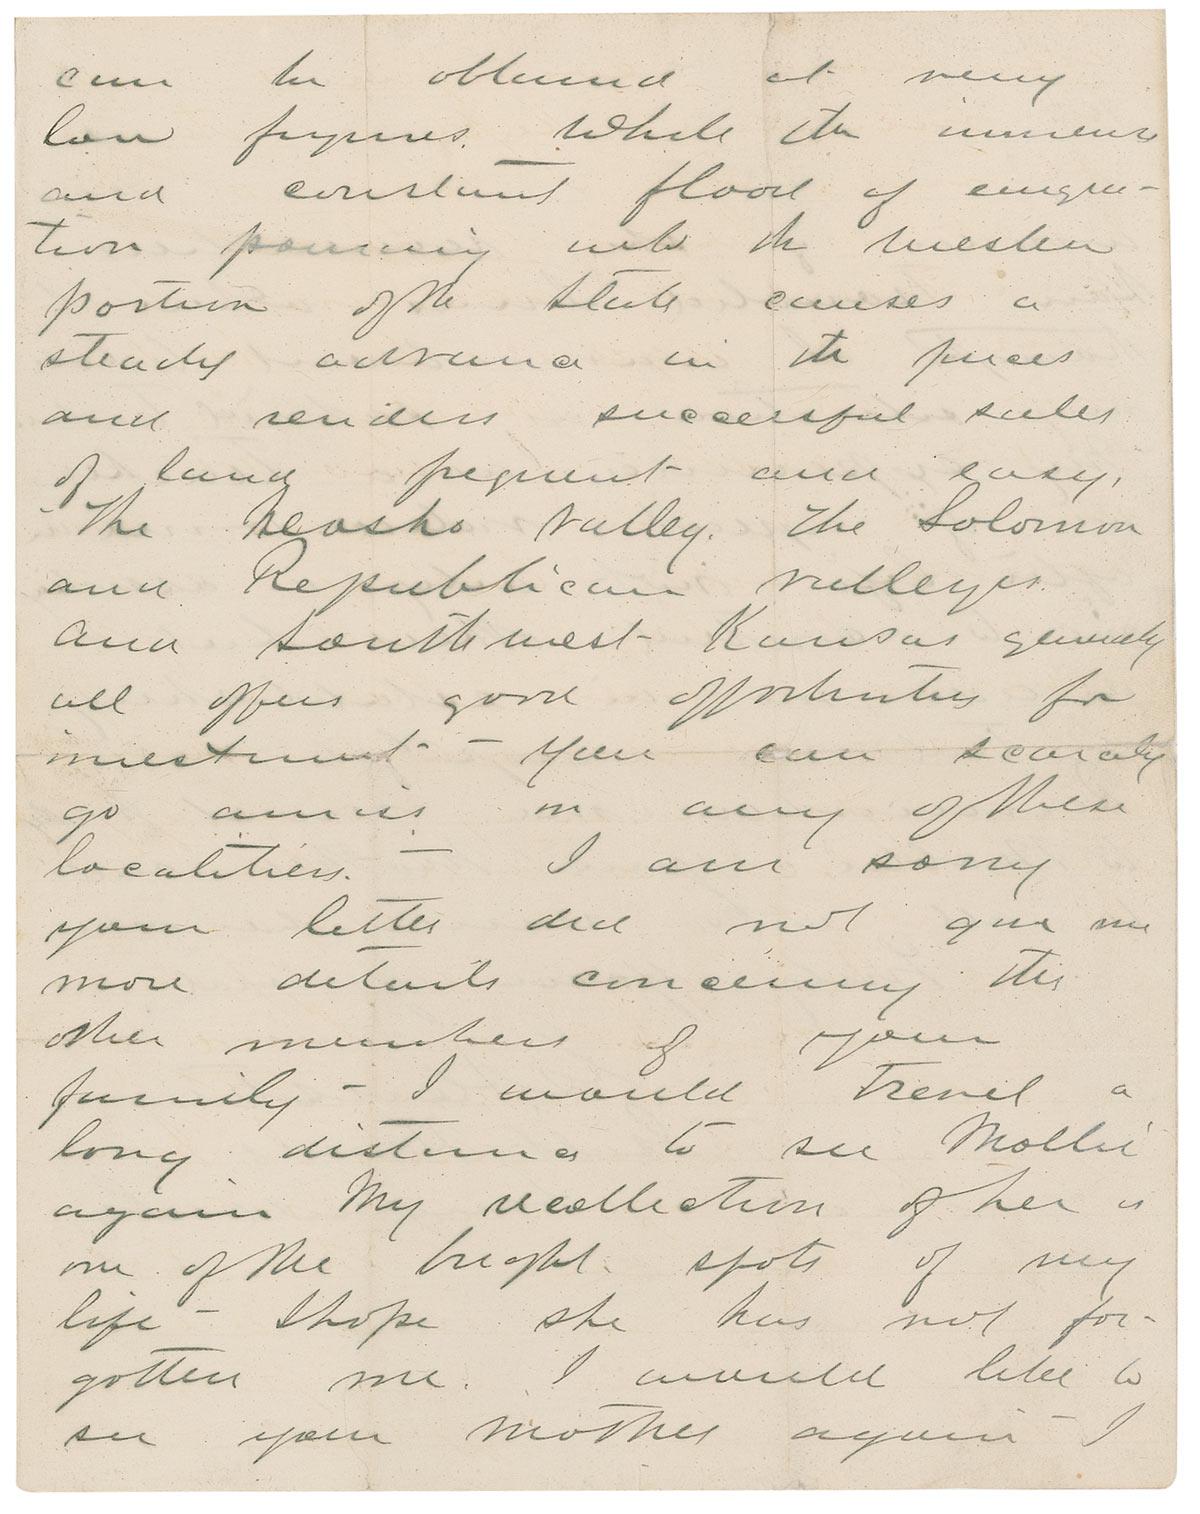 can be obtained at very
low figures. While the immense
and constant flood of emigra-
tion pouring into the western
portion of the State causes a
steady advance in the prices
and renders successful sales
of land frequent and easy.
The Neosho Valley. The Solomon
and Republican valleys.
and Southwest Kansas generally
all offers good opportunities for
investment - You can scarcely
go amiss in any of these
localities. - I am sorry
your letter did not give me
more details concerning the
other members of your
family - I would travel a
long distance to see Mollie
again My recollection of her is
one of the bright spots of my
life - I hope she has not for-
gotten me. I would like to
see your mother again - I